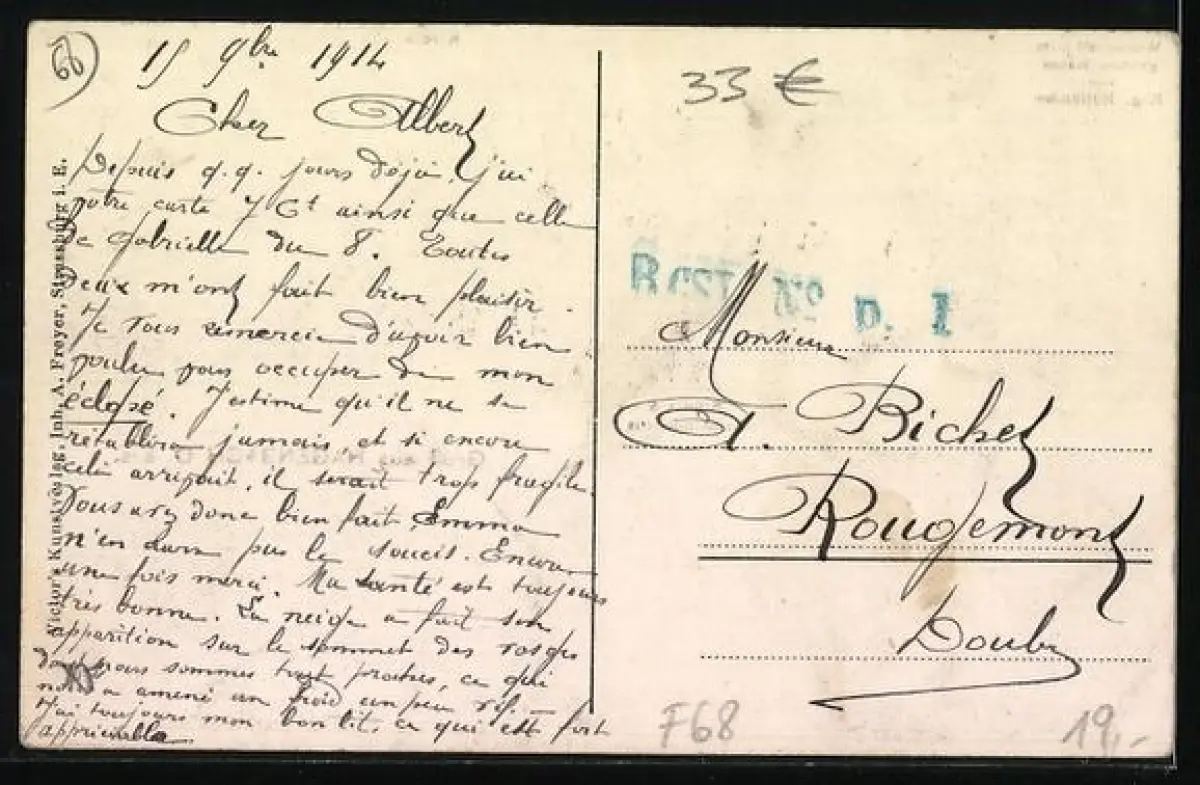 66
15 9bre 1914
Cher Albert
Depuis q.q. jours déjà, j'ai
votre carte 7 Ct ainsi que celle
de Gabrielle du 8. Toutes
deux m'ont fait bien plaisir.
Je vous remercie d'avoir bien
voulu vous occuper de mon
éclopé. J'estime qu'il ne se
rétablira jamais, et si encore
cela arrivait, il serait trop fragile.
Vous avez donc bien fait, Emma
n'en aura pas le soucis. Encore
une fois merci. Ma santé est toujours
très bonne. La neige a fait son
apparition sur le sommet des Vosges
dont nous sommes tout proches, ce qui
nous a amené un froid un peu vif.
J'ai toujours mon bon lit, ce qui est fort
appréciable.
Victor's Kunstverlag, Inh. A. Freyer, Strassburg i. E.
33 €
P. I
Monsieur
A. Bichet
Rougemont
Doubs
F68
19,-